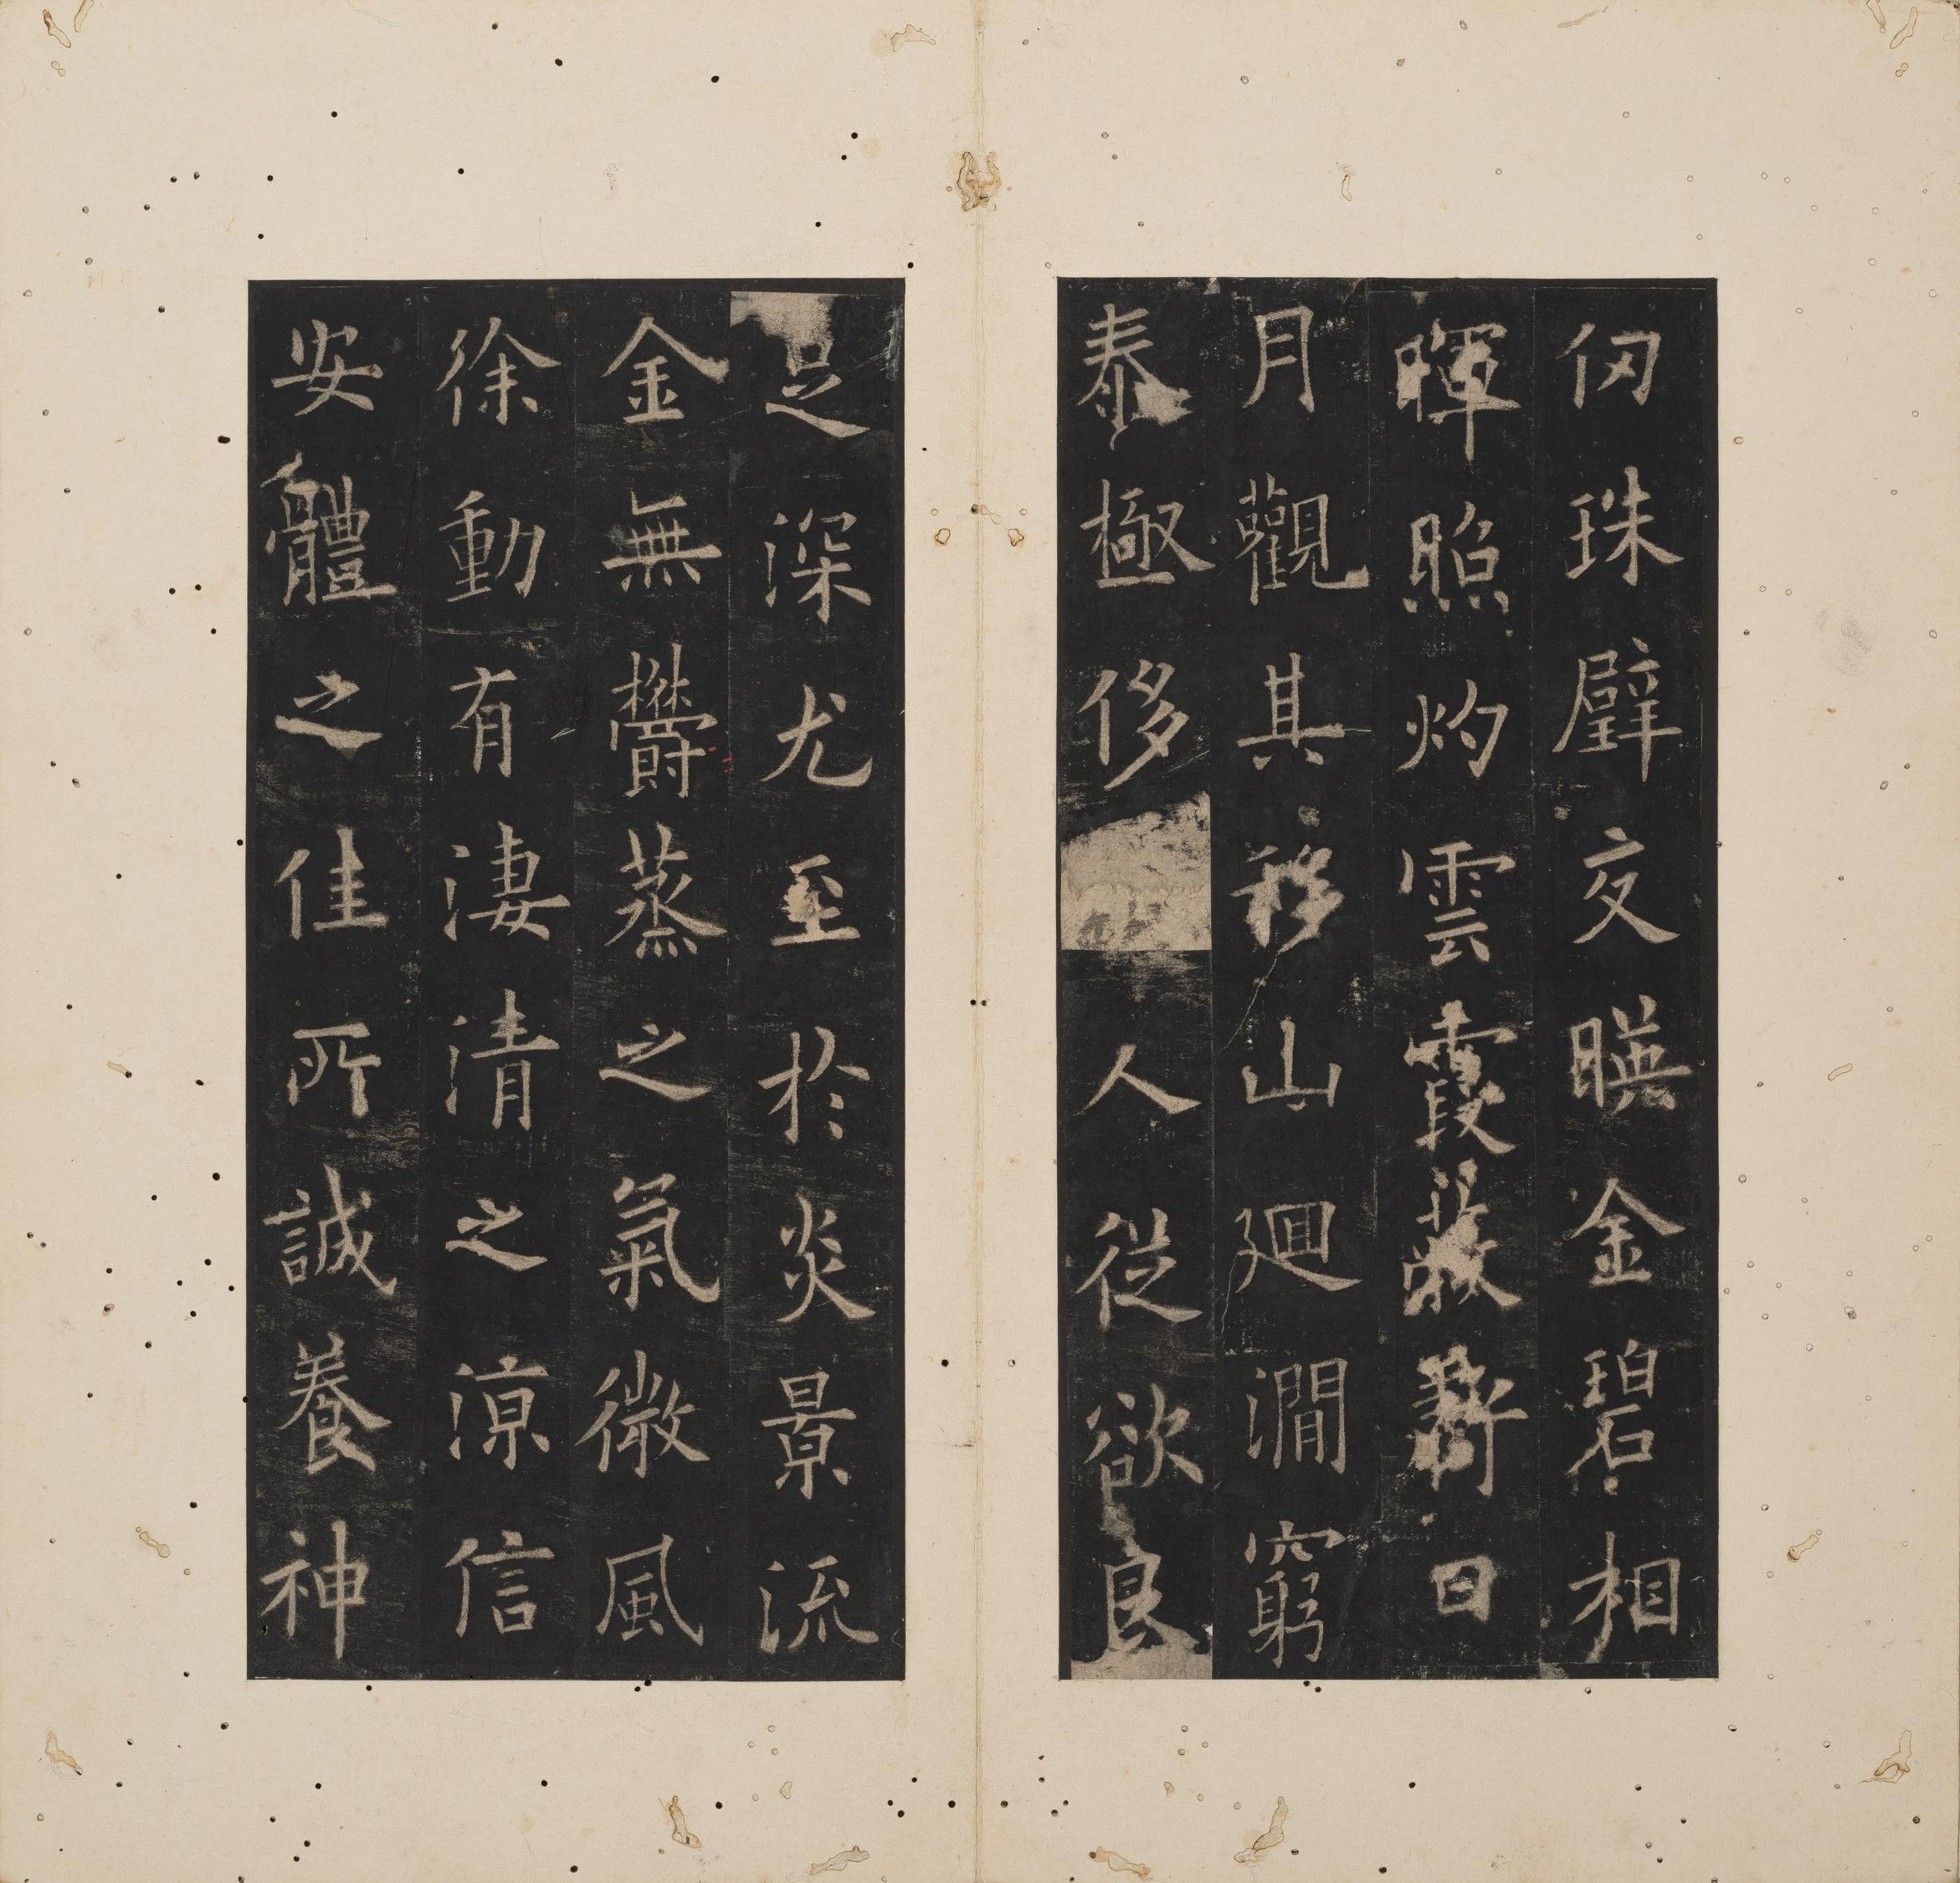 仞珠璧交暎金碧相
暉照灼雲霞蔽虧日
月觀其移山廻澗窮
泰極侈人從欲良
足深尤至於炎景流
金無鬱蒸之氣微風
徐動有淒清之涼信
安體之佳所誠養神